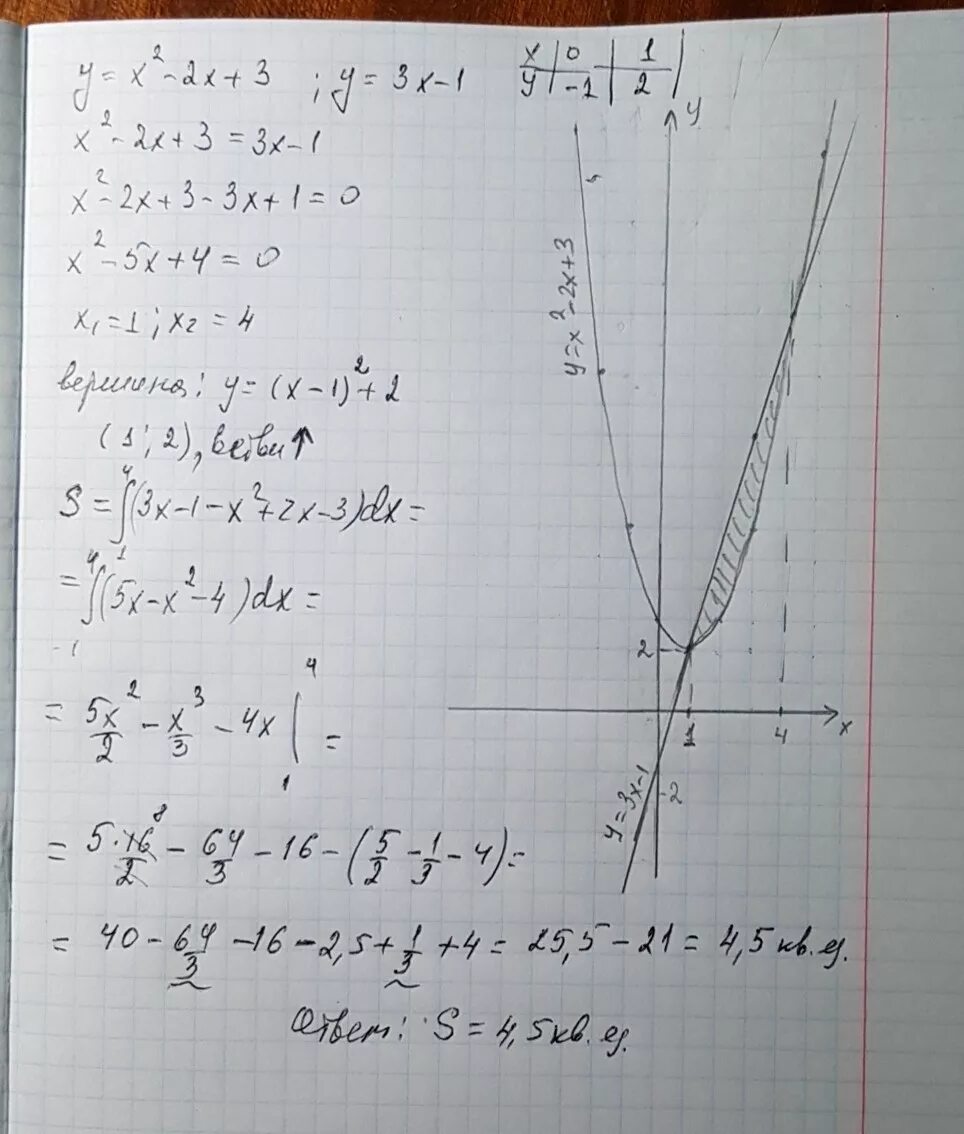 y = x² - 2x + 3 ; y = 3x - 1
x | 0 | 1
y | -1 | 2
x² - 2x + 3 = 3x - 1
x² - 2x + 3 - 3x + 1 = 0
x² - 5x + 4 = 0
x₁ = 1 ; x₂ = 4
вершина: y = (x - 1)² + 2
(1; 2), ветви ↑
S = ∫₁⁴ (3x - 1 - x² + 2x - 3) dx =
= ∫₁⁴ (5x - x² - 4) dx =
= 5x²/2 - x³/3 - 4x |₁⁴ =
= 5·16⁸/2 - 64/3 - 16 - (5/2 - 1/3 - 4) =
= 40 - 64/3 - 16 - 2,5 + 1/3 + 4 = 25,5 - 21 = 4,5 кв. ед.
Ответ: S = 4,5 кв. ед.
y
y = x² - 2x + 3
2
1
4
x
-2
y = 3x - 1